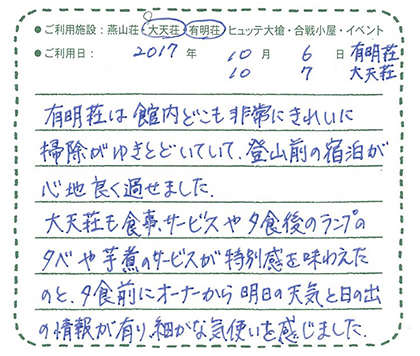 ●ご利用施設：燕山荘・大天荘・有明荘・ヒュッテ大槍・合戦小屋・イベント
●ご利用日： 2017 年 10 月 6 日 有明荘
10 7 大天荘
有明荘は館内どこも非常にきれいに
掃除がゆきとどいていて、登山前の宿泊が
心地良く過せました.
大天荘も食事、サービスや夕食後のランプの
夕べや芋煮のサービスが特別感を味わえた
のと、夕食前にオーナーから明日の天気と日の出
の情報が有り、細かな気使いを感じました.